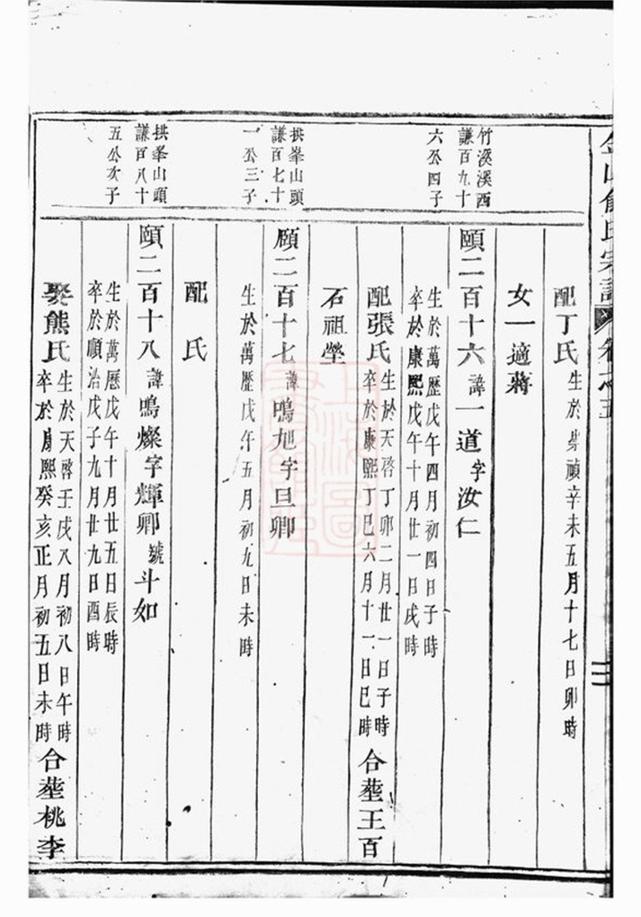 配丁氏
生於崇禎辛未五月十七日卯時
女一適蔣
竹溪溪西
謙百九十
六公四子
頤二百十六諱一道字汝仁
生於萬歷戊午四月初四日子時
卒於康熙戊午十月廿一日戌時
配張氏
生於天啓丁卯二月廿一日子時
卒於康熙丁巳六月十一日巳時
合塟王百
石祖塋
拱峯山頭
謙百七十
一公三子
頤二百十七諱鳴旭字旦卿
生於萬歷戊午五月初九日未時
配 氏
拱峯山頭
謙百八十
五公次子
頤二百十八諱鳴燦字輝卿號斗如
生於萬歷戊午十月廿五日辰時
卒於順治戊子九月廿九日酉時
娶熊氏
生於天啓壬戌八月初八日午時
卒於康熙癸亥正月初五日未時
合塟桃李